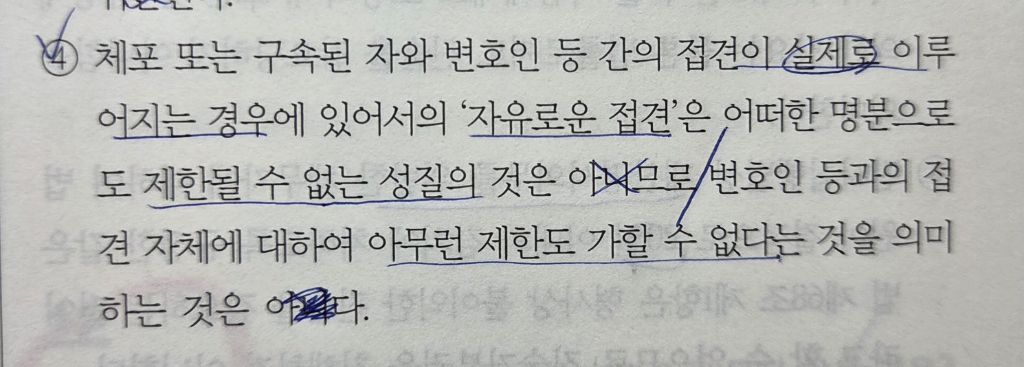 ④ 체포 또는 구속된 자와 변호인 등 간의 접견이 실제로 이루
어지는 경우에 있어서의 ‘자유로운 접견’은 어떠한 명분으로
도 제한될 수 없는 성질의 것은 아니므로 변호인 등과의 접
견 자체에 대하여 아무런 제한도 가할 수 없다는 것을 의미
하는 것은 다.